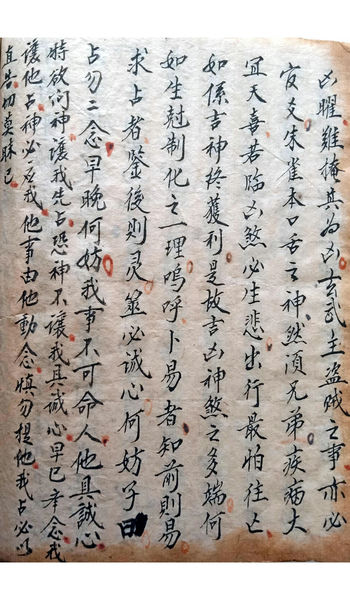 凶曜難掩其為凶玄武主盜賊之事亦必
官爻朱雀本口舌之神然須兄弟疾病大
宜天喜若臨凶煞必生悲出行最怕往亡
如係吉神終獲利是故吉凶神煞之多端何
如生尅制化之一理嗚呼卜易者知前則易
求占者鑒後則灵筮必誠心何妨子日
占勿二念早晚何妨我事不可命人他具誠心
時欲问神讓我先占恐神不讓我具誠心早已年念我
讓他占神必忘我他事由他動念慎勿提他我占必以
直告切莫昧已